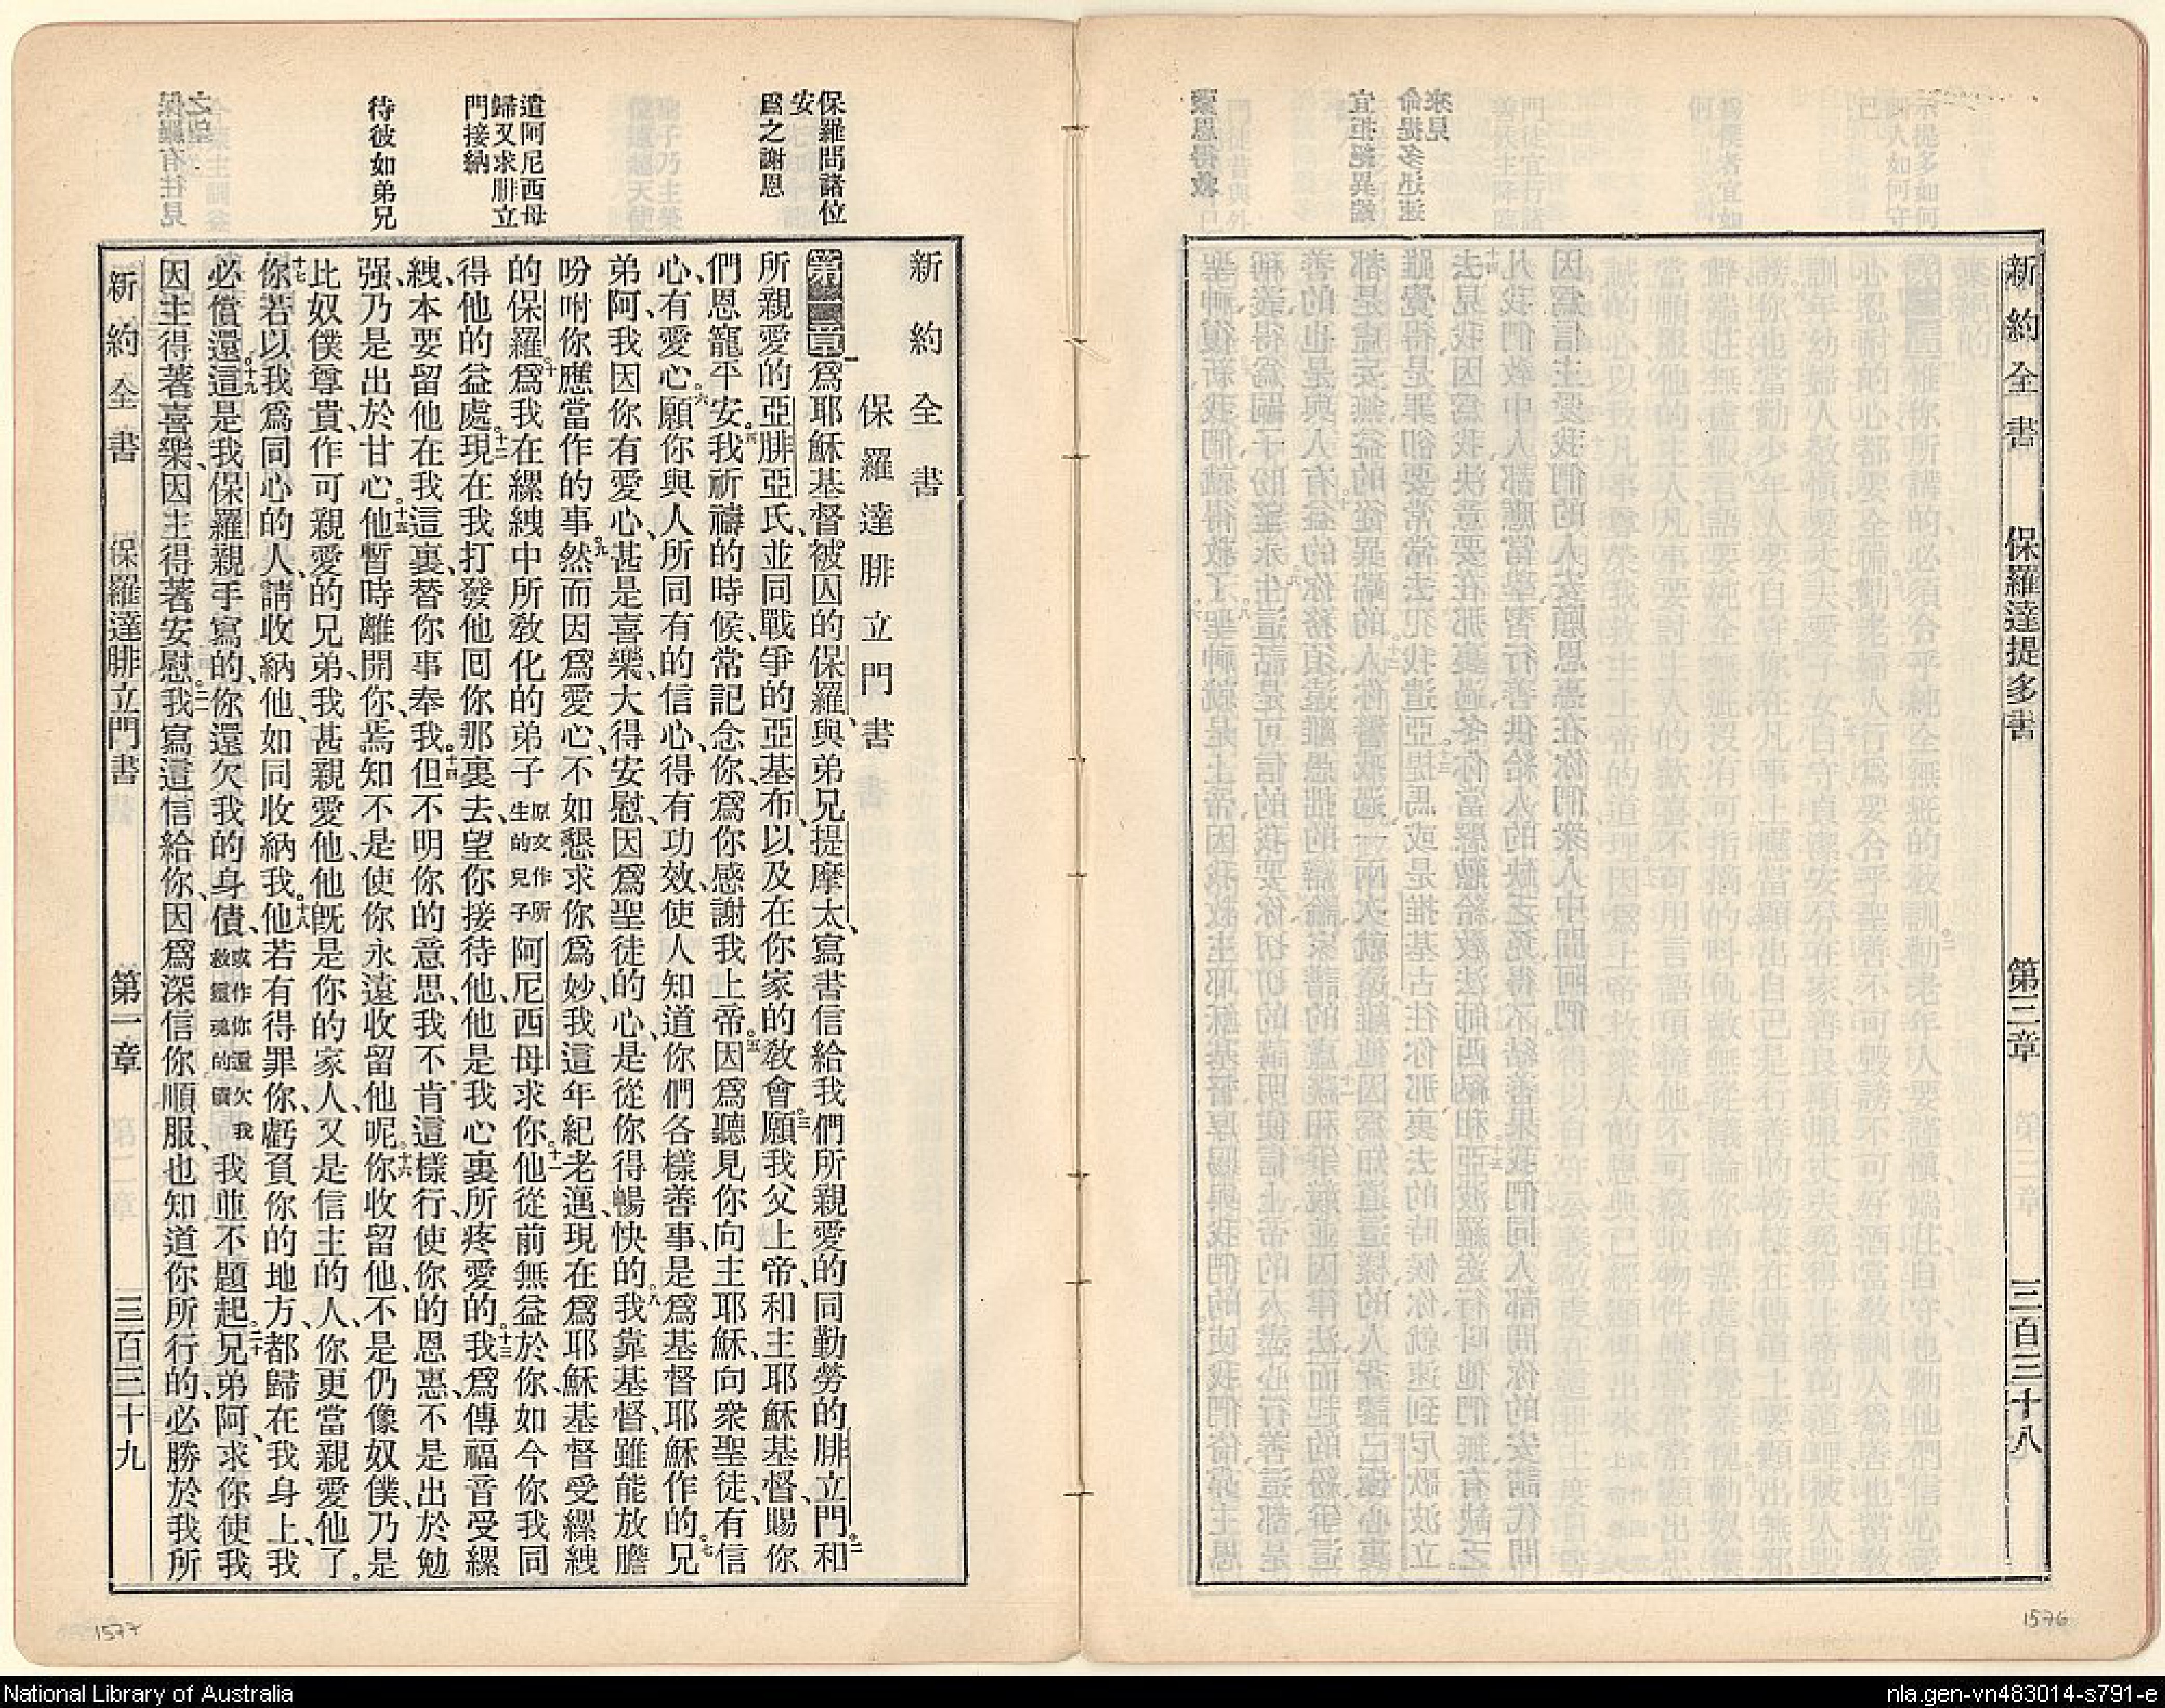 新約全書 保羅達提多書 第三章 三百三十八
新約全書
保羅達腓立門書
保羅問諸位
安
爲之謝恩
遣阿尼西母
歸又求腓立
門接納
待彼如弟兄
第一章一爲耶穌基督被囚的保羅、與弟兄提摩太、寫書信給我們所親愛的同勤勞的腓立門、二和
所親愛的亞腓亞氏、並同戰爭的亞基布、以及在你家的敎會。三願我父上帝、和主耶穌基督、賜你
們恩寵平安。四我祈禱的時候、常記念你、爲你感謝我上帝。五因爲聽見你向主耶穌、向衆聖徒、有信
心、有愛心。六願你與人所同有的信心、得有功效、使人知道你們各樣善事、是爲基督耶穌作的。七兄
弟阿、我因你有愛心、甚是喜樂、大得安慰、因爲聖徒的心、是從你得暢快的。八我靠基督、雖能放膽
吩咐你應當作的事、九然而因爲愛心、不如懇求你爲妙、我這年紀老邁、現在爲耶穌基督受縲絏
的保羅、十爲我在縲絏中所敎化的弟子原文作所生的兒子阿尼西母求你。十一他從前無益於你、如今你我同
得他的益處。十二現在我打發他囘你那裏去、望你接待他、他是我心裏所疼愛的。十三我爲傳福音受縲
絏、本要留他在我這裏、替你事奉我。十四但不明你的意思、我不肯這樣行、使你的恩惠、不是出於勉
强、乃是出於甘心。十五他暫時離開你、焉知不是使你永遠收留他呢。十六你收留他、不是仍像奴僕、乃是
比奴僕尊貴、作可親愛的兄弟、我甚親愛他、他旣是你的家人、又是信主的人、你更當親愛他了。
十七你若以我爲同心的人、請收納他、如同收納我。十八他若有得罪你、虧負你的地方、都歸在我身上、我
必償還。十九這是我保羅親手寫的、你還欠我的身債、或作你還欠我救靈魂的債我並不題起。二十兄弟阿、求你使我
因主得著喜樂、因主得著安慰。二一我寫這信給你、因爲深信你順服、也知道你所行的、必勝於我所
新約全書 保羅達腓立門書 第一章 三百三十九
1577
1576
National Library of Australia
nla.gen-vn483014-s791-e